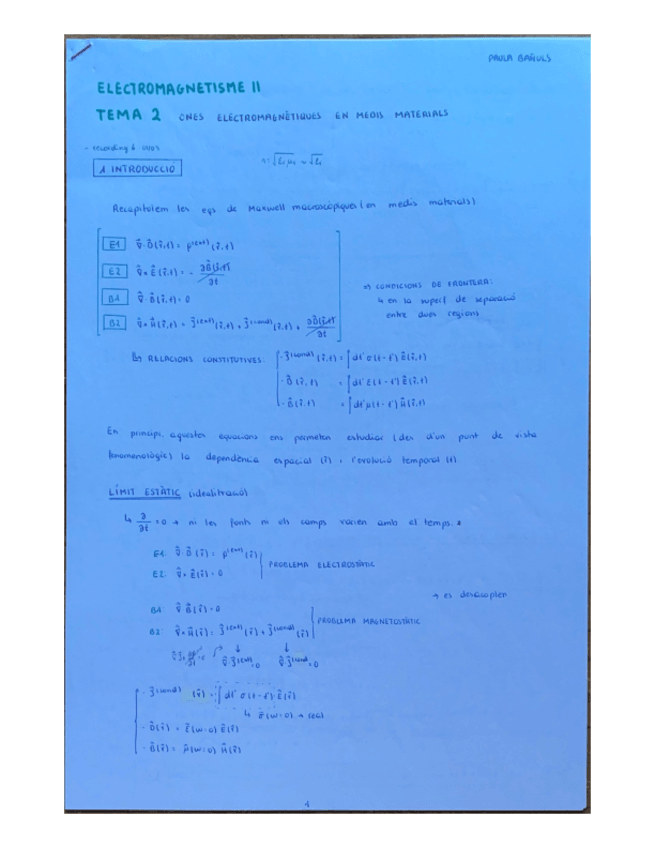 PAULA BAÑULS
ELECTROMAGNETISME II
TEMA 2 ONES ELECTROMAGNÈTIQUES EN MEDIS MATERIALS
1. INTRODUCCIÓ
Recapitulem les eqs de Maxwell macroscòpiques (en medis materials)
E1 ∇·D(r,t) = ρ^(ext)(r,t)
E2 ∇×E(r,t) = - ∂B(r,t)/∂t
B1 ∇·B(r,t) = 0
B2 ∇×H(r,t) = J^(ext)(r,t) + J^(cond)(r,t) + ∂D(r,t)/∂t
⇒ CONDICIONS DE FRONTERA:
↳ en la superf de separació
entre dues regions
RELACIONS CONSTITUTIVES: · J^(cond)(r,t) = ∫dt' σ(t-t') E(r,t)
· D(r,t) = ∫dt' ε(t-t') E(r,t)
· B(r,t) = ∫dt' μ(t-t') H(r,t)
En principi, aquestes equacions ens permeten estudiar (des d'un punt de vista
fenomenològic) la dependència espacial (r) i l'evolució temporal (t).
LÍMIT ESTÀTIC (idealització)
↳ ∂/∂t = 0 → ni les fonts ni els camps varien amb el temps.
E1: ∇·D(r) = ρ^(ext)(r)
E2: ∇×E(r) = 0
PROBLEMA ELECTROSTÀTIC
→ es desacoplen
B1: ∇·B(r) = 0
B2: ∇×H(r) = J^(ext)(r) + J^(cond)(r)
PROBLEMA MAGNETOSTÀTIC
∇·J^(ext) = 0 ∇·J^(cond) = 0
· J^(cond)(r) = ∫dt' σ(t-t') E(r)
↳ σ(ω=0)
· D(r) = ε(ω=0) E(r)
· B(r) = μ(ω=0) H(r)
1